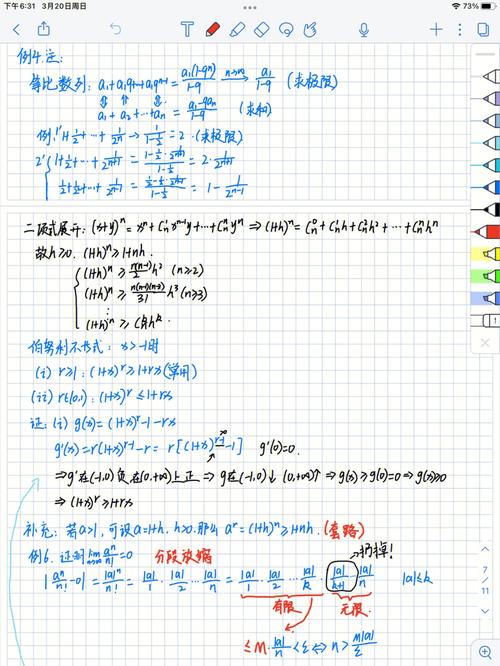 下午6:31 3月20日周日
73%
例4.注:
等比数列: a₁+a₁q+⋯+a₁qⁿ⁻¹ = a₁(1-qⁿ)/(1-q) →(n→∞) a₁/(1-q) (求极限)
a₁+a₂+⋯+aₙ = (a₁-qaₙ)/(1-q) (求和)
例: 1° 1+1/2+⋯+1/2ⁿ → 1/(1-1/2) = 2. (求极限)
二项式展开: (x+y)ⁿ = xⁿ+Cₙ¹xⁿ⁻¹y+⋯+Cₙⁿyⁿ ⇒ (1+h)ⁿ = Cₙ⁰+Cₙ¹h+Cₙ²h²+⋯+Cₙⁿhⁿ
故h≥0. (1+h)ⁿ≥1+nh.
(1+h)ⁿ ≥ n(n-1)/2 h² (n≥2)
(1+h)ⁿ ≥ n(n-1)(n-2)/3! h³ (n≥3)
⋮
(1+h)ⁿ ≥ Cₙᵏhᵏ.
伯努利不等式: x>-1时
(i) r≥1: (1+x)ʳ≥1+rx (常用)
(ii) r∈(0,1): (1+x)ʳ≤1+rx
证: (i) g(x) = (1+x)ʳ-1-rx
g'(x) = r(1+x)ʳ⁻¹-r = r[(1+x)ʳ⁻¹-1] g'(0)=0.
⇒g'在(-1,0)负,在(0,+∞)上正 ⇒ g在(-1,0)↓ (0,+∞)↑ ⇒ g(x)≥g(0)=0 ⇒ g(x)≥0
⇒ (1+x)ʳ≥1+rx
补充: 若a>1, 可设a=1+h. h>0. 那么 aⁿ=(1+h)ⁿ≥1+nh. (套路)
例6. 证明 lim(n→∞) aⁿ/n! = 0 分段放缩 扔掉!
|aⁿ/n! - 0| = |a|ⁿ/n! = |a|/1 · |a|/2 ⋯ |a|/n = |a|/1 · |a|/2 ⋯ |a|/k · |a|/(k+1) ⋯ |a|/n |a|≤k
有限 无限.
≤ M · |a|/n < ε ⇔ n > M|a|/ε
7
11